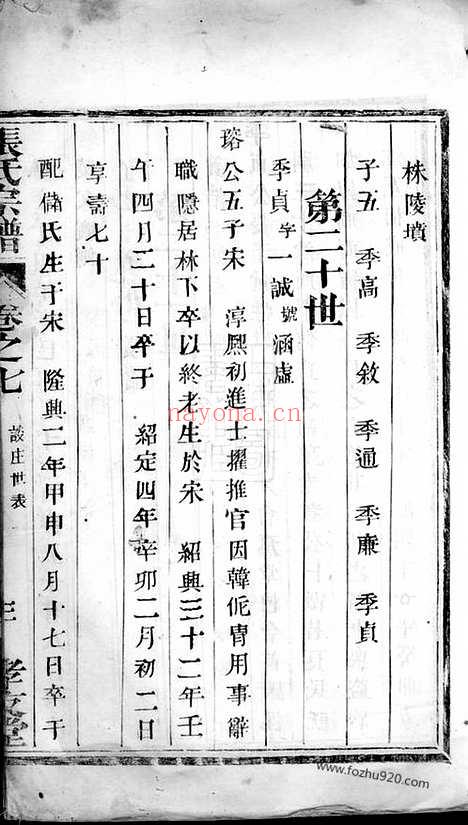 株陵墳
子五 季高 季敘 季通 季廉 季貞
第二十世
季貞字一誠號涵虛
瑢公五子宋 淳熙初進士擢推官因韓侂冑用事辭
職隱居林下卒以終老生於宋 紹興三十二年壬
午四月三十日卒于 紹定四年辛卯二月初二日
享壽七十
配儲氏生于宋 隆興二年甲申八月十七日卒于
張氏宗譜 卷之七 談庄世表 三 孝友堂
nayona.cn
www.fozhu920.com